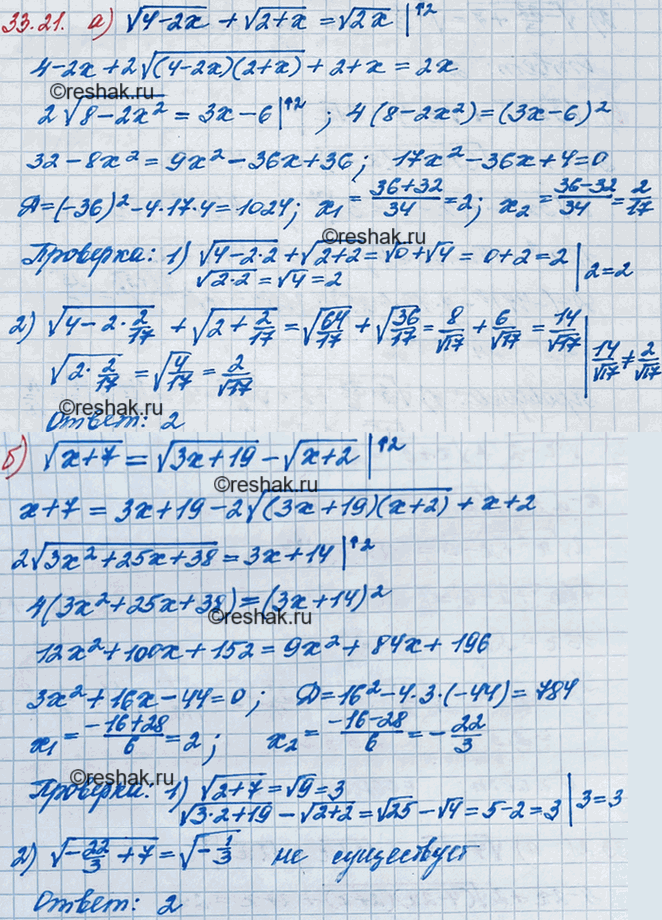 33.21. а) √(4-2x) + √(2+x) = √(2x) |↑2
4-2x+2√((4-2x)(2+x)) + 2+x = 2x
2√(8-2x²) = 3x-6 |↑2 ; 4(8-2x²)=(3x-6)²
32-8x² = 9x²-36x+36; 17x²-36x+4=0
Д=(-36)²-4·17·4=1024; x₁ = (36+32)/34 = 2; x₂ = (36-32)/34 = 2/17
©reshak.ru
Проверка: 1) √(4-2·2) + √(2+2) = √0+√4 = 0+2=2 | 2=2
√(2·2) = √4 = 2
2) √(4-2·2/17) + √(2+2/17) = √(64/17) + √(36/17) = 8/√17 + 6/√17 = 14/√17 | 14/√17 ≠ 2/√17
√(2·2/17) = √(4/17) = 2/√17
©reshak.ru
Ответ: 2
б) √(x+7) = √(3x+19) - √(x+2) |↑2
©reshak.ru
x+7 = 3x+19-2√((3x+19)(x+2)) + x+2
2√(3x²+25x+38) = 3x+14 |↑2
4(3x²+25x+38)=(3x+14)²
©reshak.ru
12x²+100x+152=9x²+84x+196
3x²+16x-44=0; Д=16²-4·3·(-44)=784
x₁ = (-16+28)/6 = 2; x₂ = (-16-28)/6 = -22/3
©reshak.ru
Проверка: 1) √(2+7) = √9 = 3
√(3·2+19) - √(2+2) = √25 - √4 = 5-2=3 | 3=3
2) √(-22/3+7) = √(-1/3) не существует
©reshak.ru
Ответ: 2